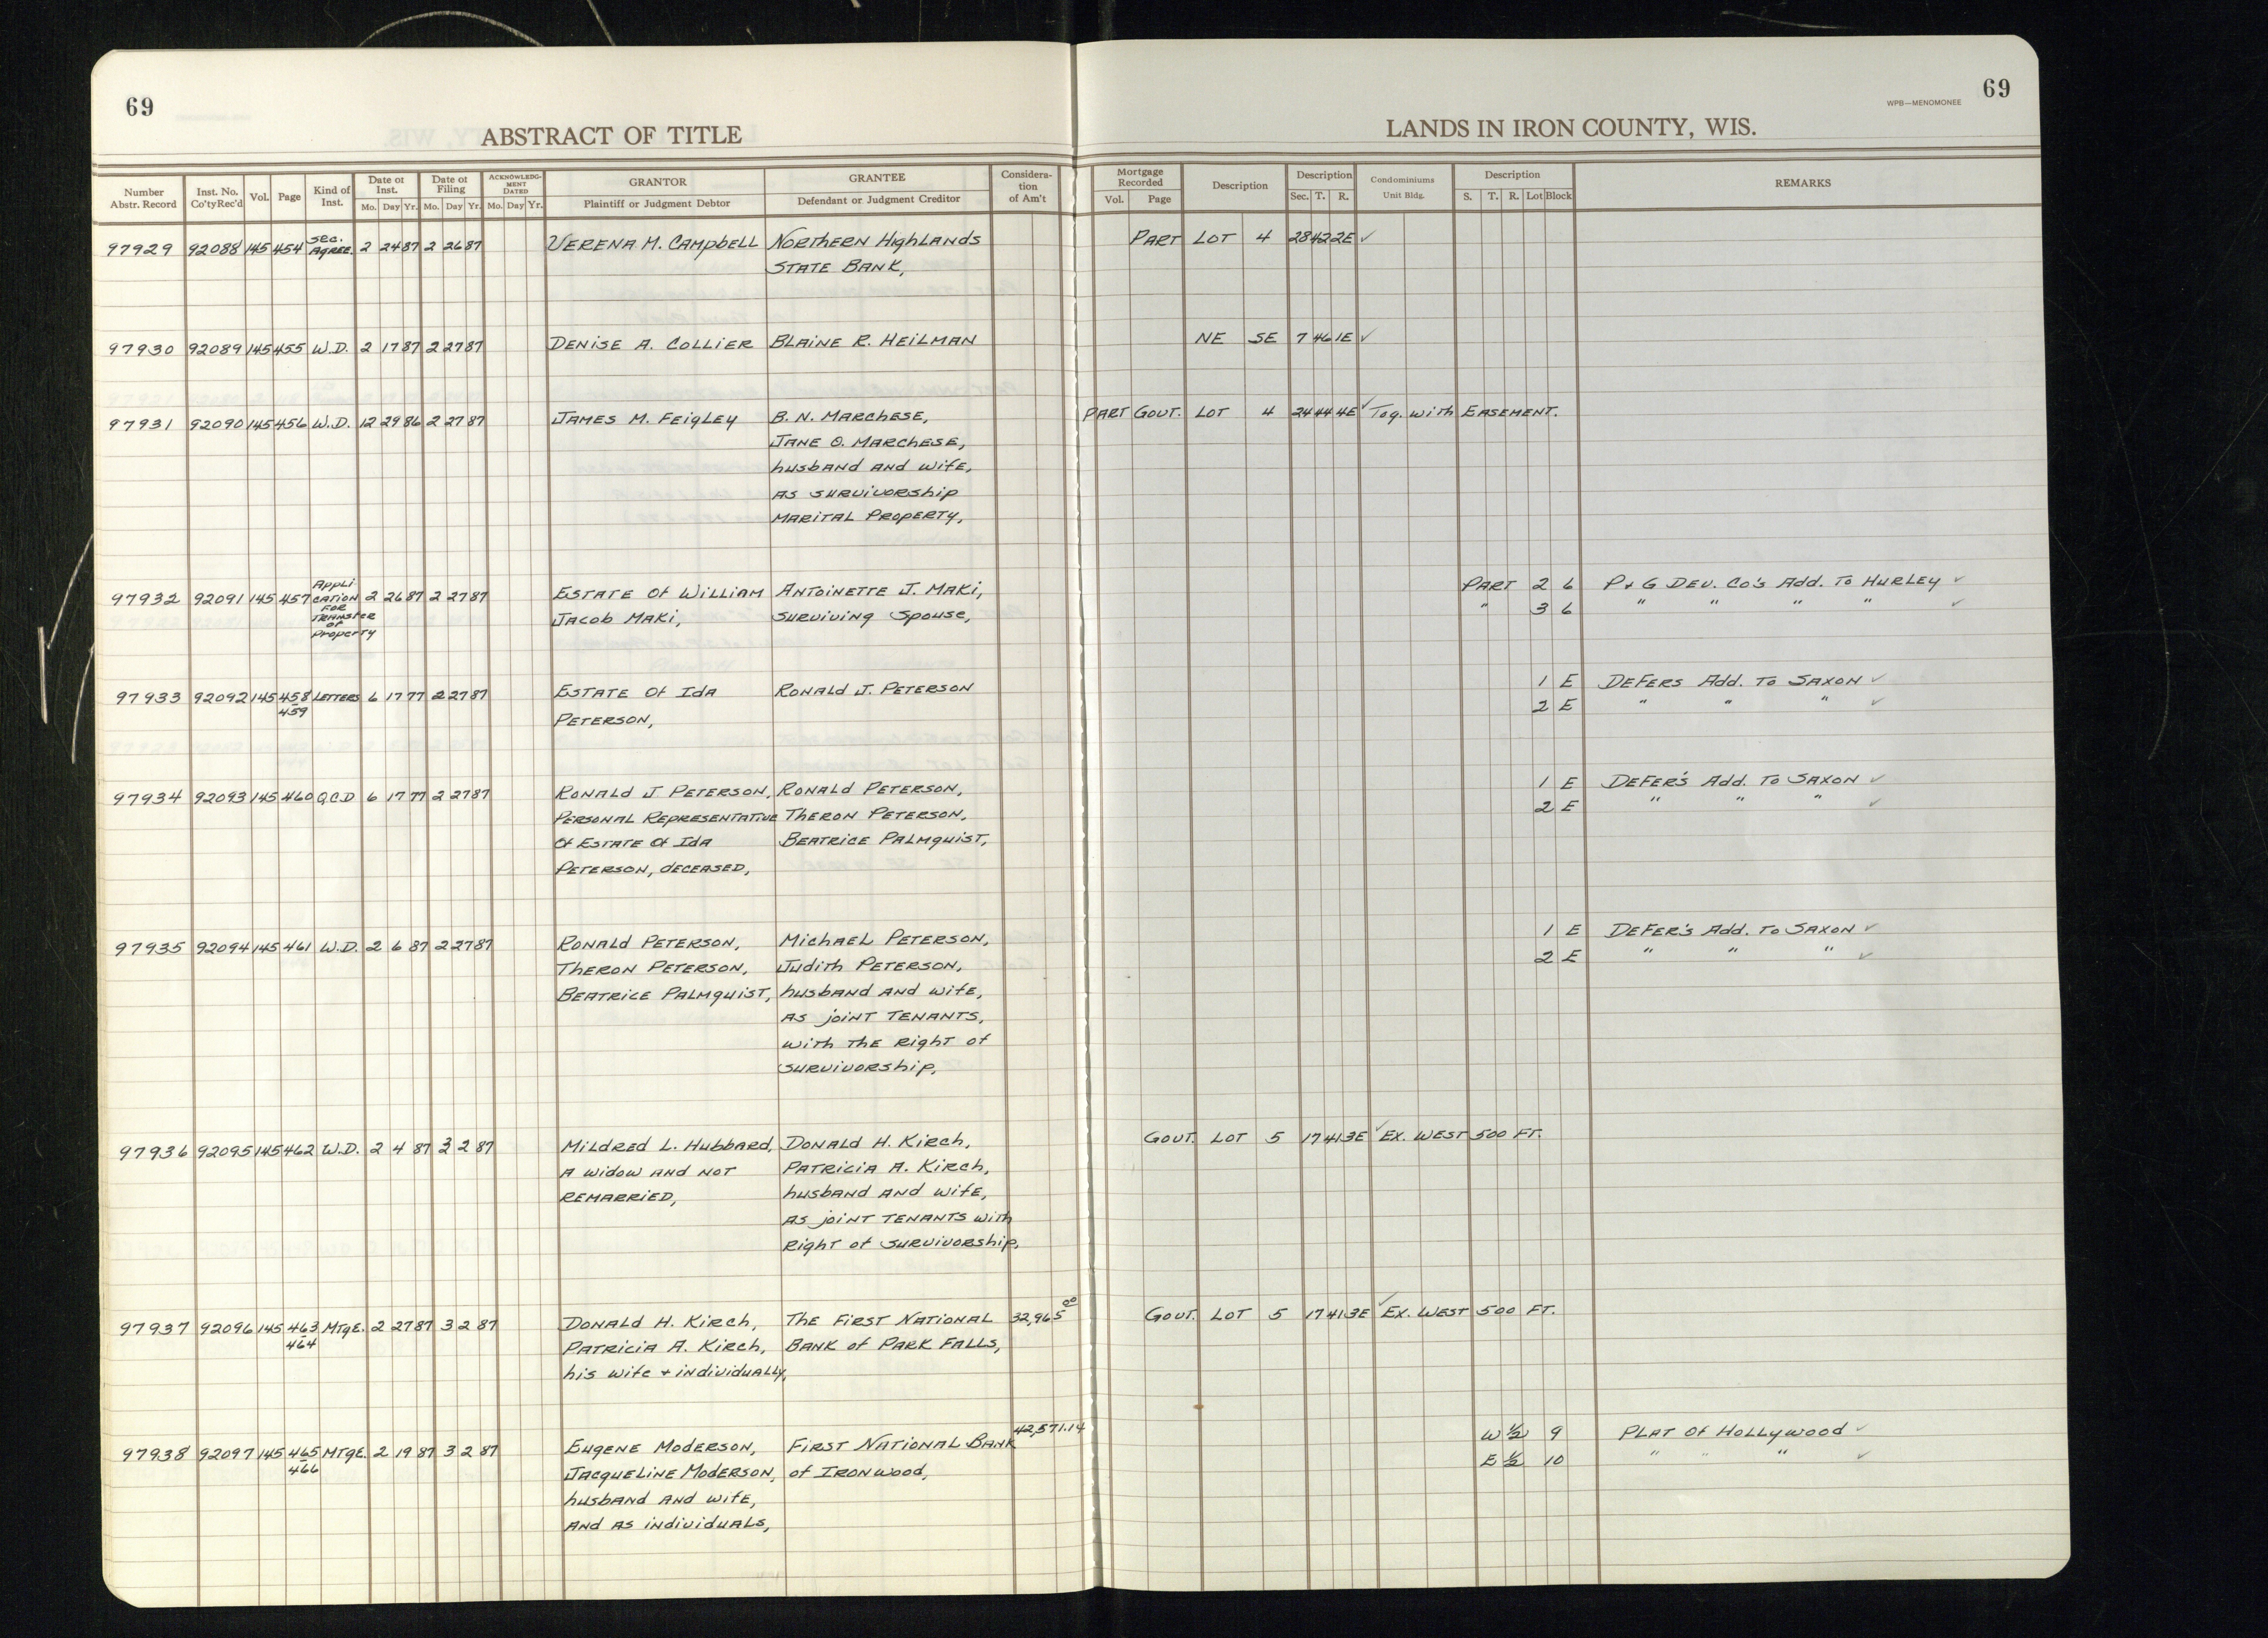 69
69
WPB—MENOMONEE
ABSTRACT OF TITLE
LANDS IN IRON COUNTY, WIS.
Number Abstr. Record Inst. No. Co'ty Rec'd Vol. Page Kind of Inst. Date of Inst. Mo. Day Yr. Date of Filing Mo. Day Yr. ACKNOWLEDGMENT DATED Mo. Day Yr. GRANTOR Plaintiff or Judgment Debtor GRANTEE Defendant or Judgment Creditor Consideration of Am't Mortgage Recorded Vol. Page Description Description Sec. T. R. Condominiums Unit Bldg. Description S. T. R. Lot Block REMARKS
97929 92088 145 454 Sec. Agree. 2 24 87 2 26 87 Verena M. Campbell Northern Highlands Part Lot 4 28 42 2E ✓
State Bank,
97930 92089 145 455 W.D. 2 17 87 2 27 87 Denise A. Collier Blaine R. Heilman NE SE 7 46 1E ✓
97931 92090 145 456 W.D. 12 29 86 2 27 87 James M. Feigley B. N. Marchese, Part Govt. Lot 4 24 44 4E ✓ Tog. with Easement.
Jane O. Marchese,
husband and wife,
as survivorship
marital property,
97932 92091 145 457 Application for Transfer of Property 2 26 87 2 27 87 Estate of William Antoinette J. Maki, Part 2 6 P+G Dev. Co's Add. to Hurley ✓
Jacob Maki, surviving spouse, " 3 6 " " " " ✓
97933 92092 145 458-459 Letters 6 17 77 2 27 87 Estate of Ida Ronald J. Peterson 1 E Defers Add. to Saxon ✓
Peterson, 2 E " " " ✓
97934 92093 145 460 Q.C.D 6 17 77 2 27 87 Ronald J Peterson, Ronald Peterson, 1 E Defer's Add. to Saxon ✓
Personal Representative Theron Peterson, 2 E " " " ✓
of Estate of Ida Beatrice Palmquist,
Peterson, deceased,
97935 92094 145 461 W.D. 2 6 87 2 27 87 Ronald Peterson, Michael Peterson, 1 E Defer's Add. to Saxon ✓
Theron Peterson, Judith Peterson, 2 E " " " ✓
Beatrice Palmquist, husband and wife,
as joint tenants,
with the right of
survivorship,
97936 92095 145 462 W.D. 2 4 87 3 2 87 Mildred L. Hubbard, Donald H. Kirch, Govt. Lot 5 17 41 3E ✓ Ex. West 500 Ft.
a widow and not Patricia A. Kirch,
remarried, husband and wife,
as joint tenants with
right of survivorship,
97937 92096 145 463-464 Mtge. 2 27 87 3 2 87 Donald H. Kirch, The First National 32,965 00 Govt. Lot 5 17 41 3E ✓ Ex. West 500 Ft.
Patricia A. Kirch, Bank of Park Falls,
his wife + individually,
97938 92097 145 465-466 Mtge. 2 19 87 3 2 87 Eugene Moderson, First National Bank 42,571.14 W 1/2 9 Plat of Hollywood ✓
Jacqueline Moderson, of Ironwood, E 1/2 10 " " " ✓
husband and wife,
and as individuals,